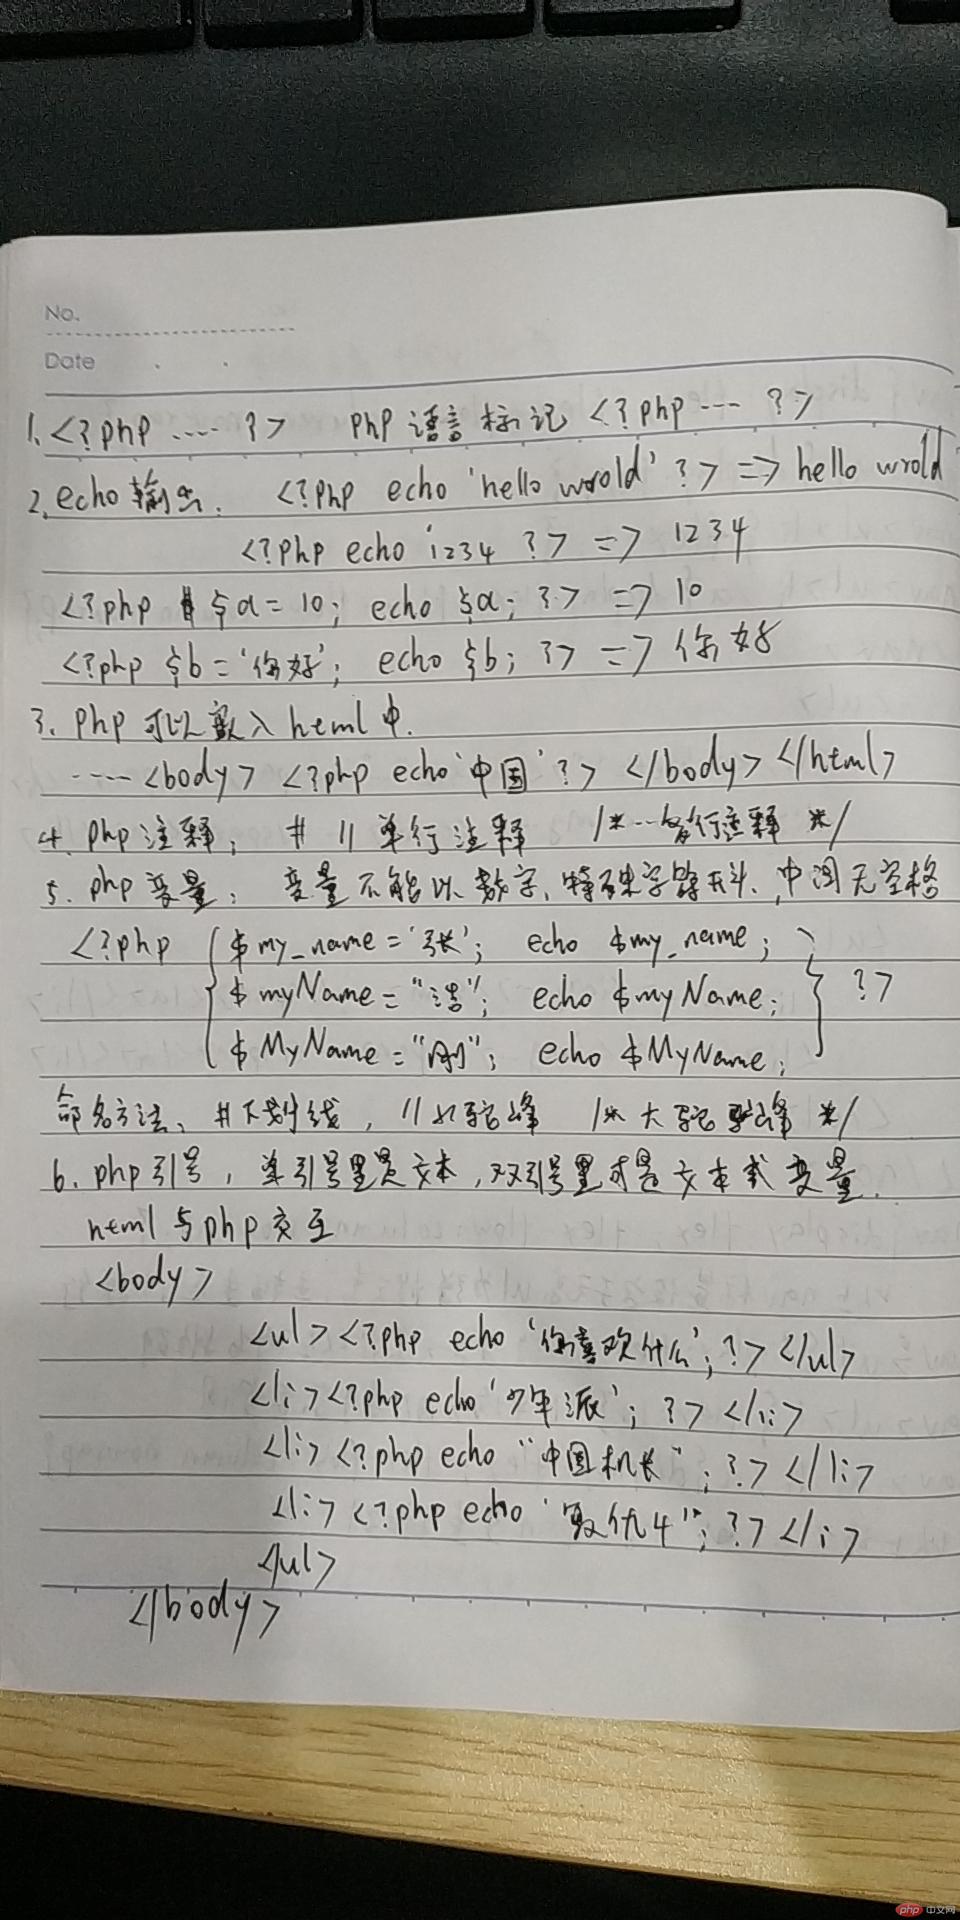 No.
Date
1. <?php ..... ?> php 语言标记 <?php --- ?>
2. echo 输出. <?php echo 'hello wrold' ?> => hello wrold
<?php echo 1234 ?> => 1234
<?php $a = 10; echo $a; ?> => 10
<?php $b = '你好'; echo $b; ?> => 你好
3. php 可以嵌入 html 中.
..... <body> <?php echo '中国' ?> </body> </html>
4. php 注释; # // 单行注释 /*...多行注释 */
5. php 变量: 变量不能以数字、特殊字符开头、中间无空格
<?php { $my_name = '张'; echo $my_name;
$myName = "洁"; echo $myName; } ?>
$MyName = "刚"; echo $MyName;
命名方法、#下划线, //小驼峰 /* 大驼峰 */
6. php 引号, 单引号里是文本, 双引号里可是文本或变量.
html 与 php 交互
<body>
<ul> <?php echo '你喜欢什么'; ?> </ul>
<li> <?php echo '少年派'; ?> </li>
<li> <?php echo "中国机长"; ?> </li>
<li> <?php echo '复仇4'; ?> </li>
</ul>
</body>
php 中文网